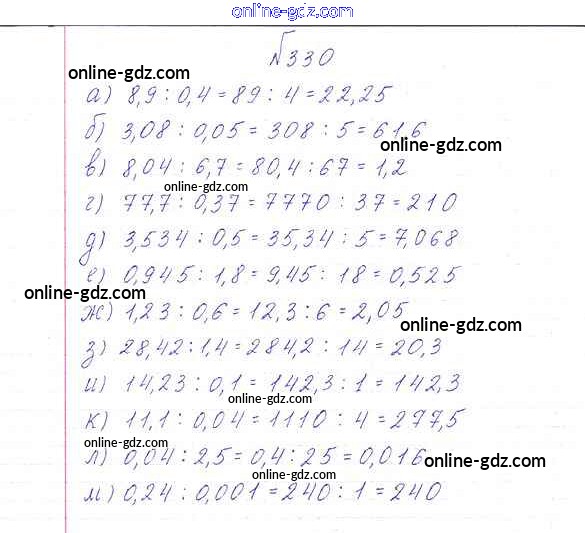 online-gdz.com
№330
online-gdz.com
а) 8,9 : 0,4 = 89 : 4 = 22,25
б) 3,08 : 0,05 = 308 : 5 = 61,6
online-gdz.com
в) 8,04 : 6,7 = 80,4 : 67 = 1,2
online-gdz.com
г) 77,7 : 0,37 = 7770 : 37 = 210
д) 3,534 : 0,5 = 35,34 : 5 = 7,068
е) 0,945 : 1,8 = 9,45 : 18 = 0,525
online-gdz.com
ж) 1,23 : 0,6 = 12,3 : 6 = 2,05
online-gdz.com
з) 28,42 : 1,4 = 284,2 : 14 = 20,3
и) 14,23 : 0,1 = 142,3 : 1 = 142,3
online-gdz.com
к) 11,1 : 0,04 = 1110 : 4 = 277,5
online-gdz.com
л) 0,04 : 2,5 = 0,4 : 25 = 0,016
online-gdz.com
online-gdz.com
м) 0,24 : 0,001 = 240 : 1 = 240